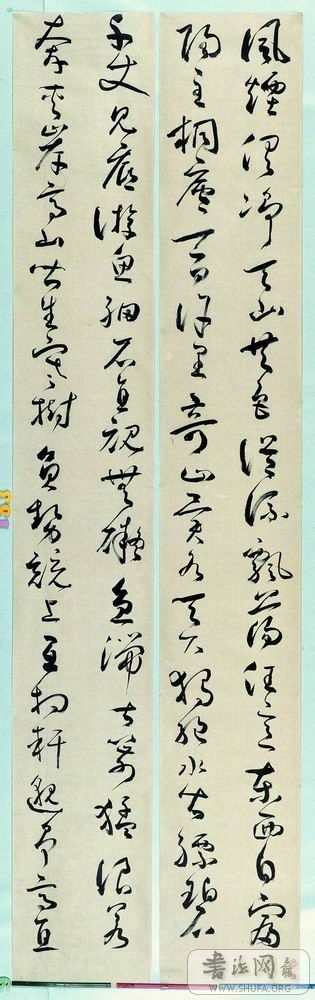 風煙俱净天山共色從流飄蕩任意東西自富
陽至桐廬一百許里奇山異水天下獨絕水皆縹碧
千丈見底游魚細石直視無礙急湍甚箭猛浪若
奔夾岸高山皆生寒樹負勢競上互相軒邈爭高直
書法网
WWW.SHUFA.ORG